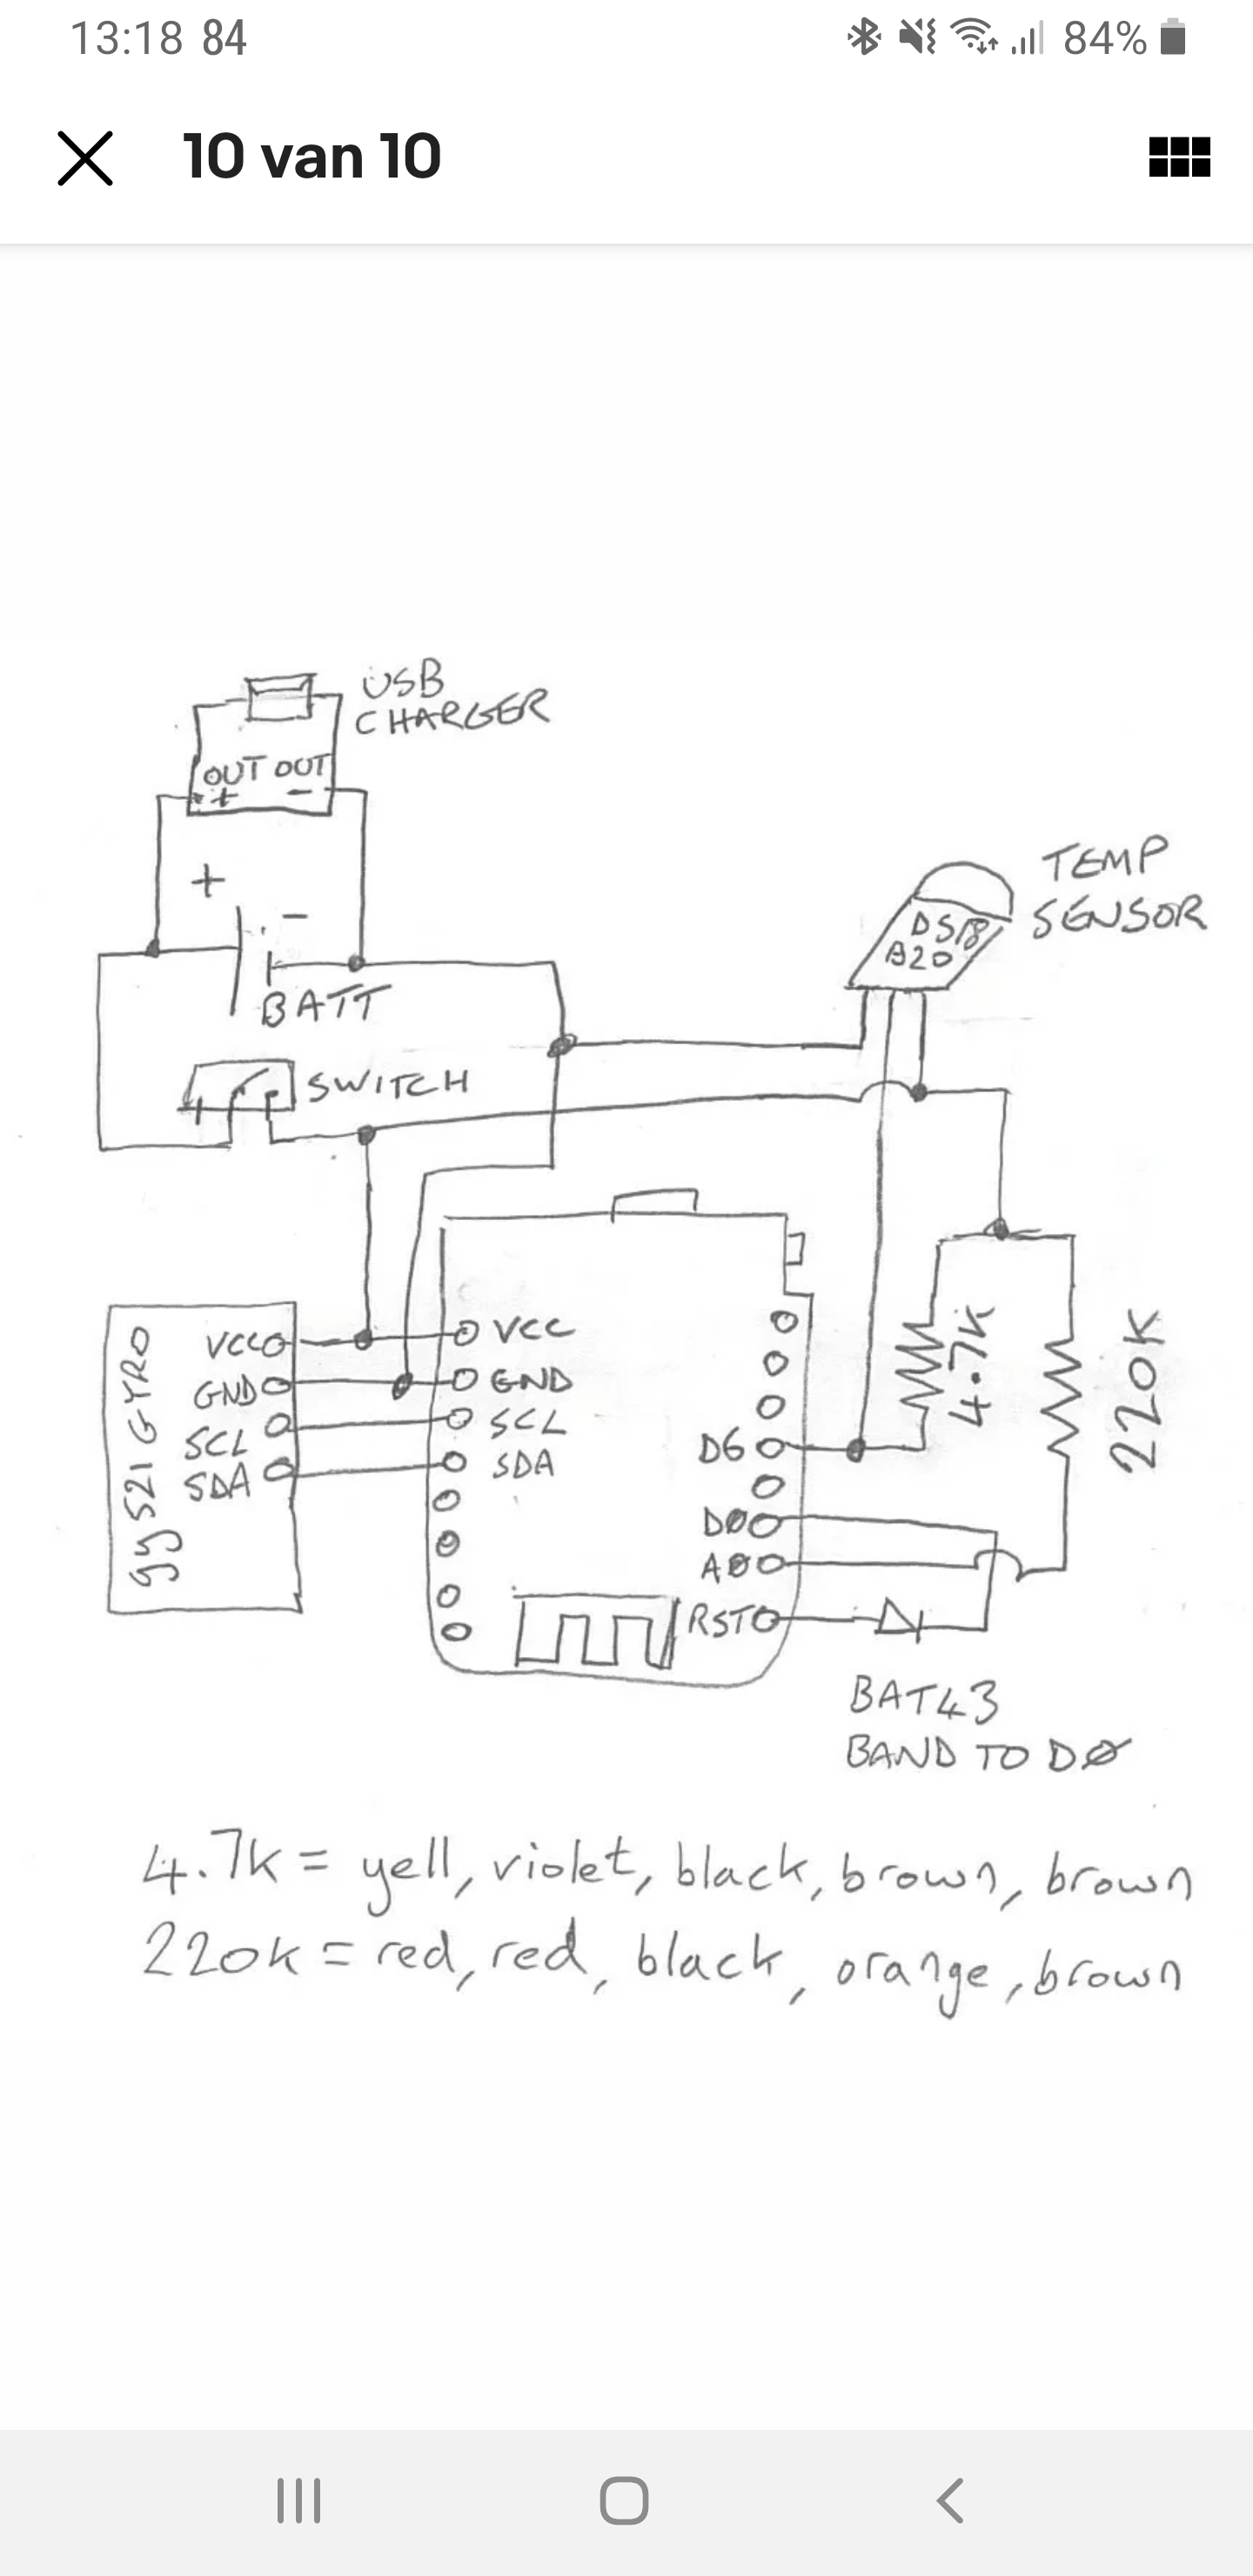 13:18 84
84%
10 van 10
USB
CHARGER
OUT OUT
+ -
+ -
BATT
SWITCH
TEMP
SENSOR
DS18
B20
gy521 GYRO
VCC
GND
SCL
SDA
VCC
GND
SCL
SDA
D6
DØ
AØ
RST
4.7K
220K
BAT43
BAND TO DØ
4.7k = yell, violet, black, brown, brown
220k = red, red, black, orange, brown